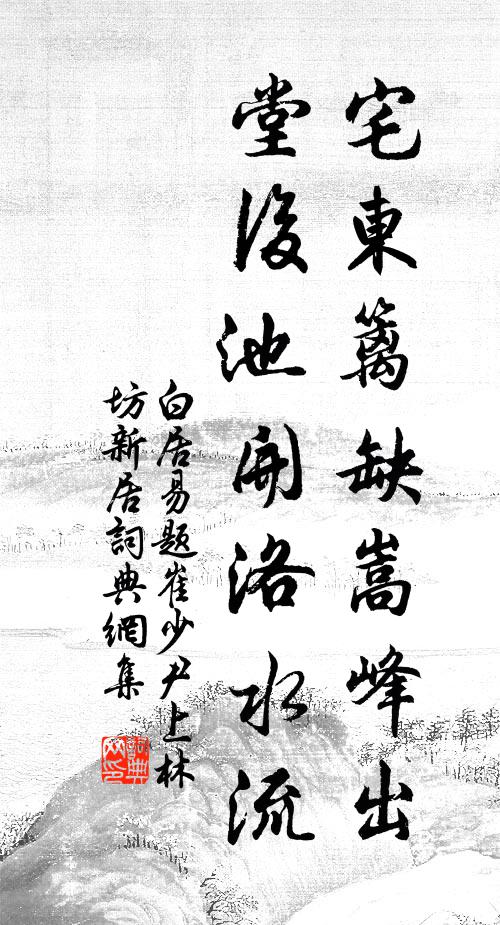 宅東籬缺嵩峰出
堂後池開洛水流
白居易題崔少尹上林
坊新居詞典網集